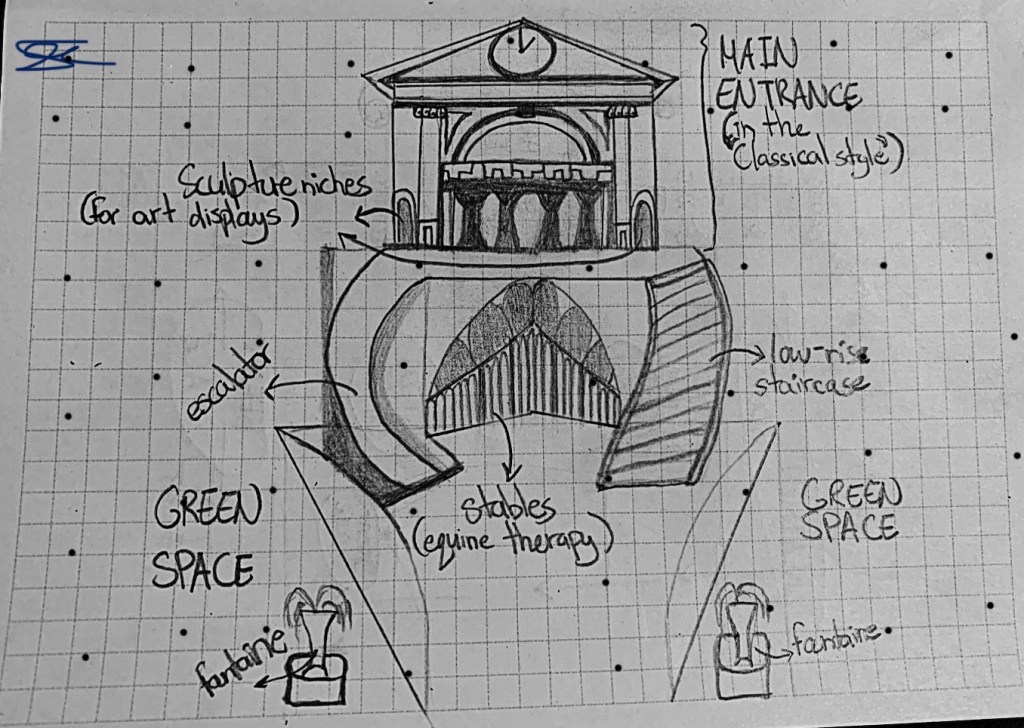 MAIN
ENTRANCE
(in the
"Classical style")
Sculpture niches
(for art displays)
escalator
low-rise
staircase
stables
(equine therapy)
GREEN
SPACE
GREEN
SPACE
fontaine
fontaine